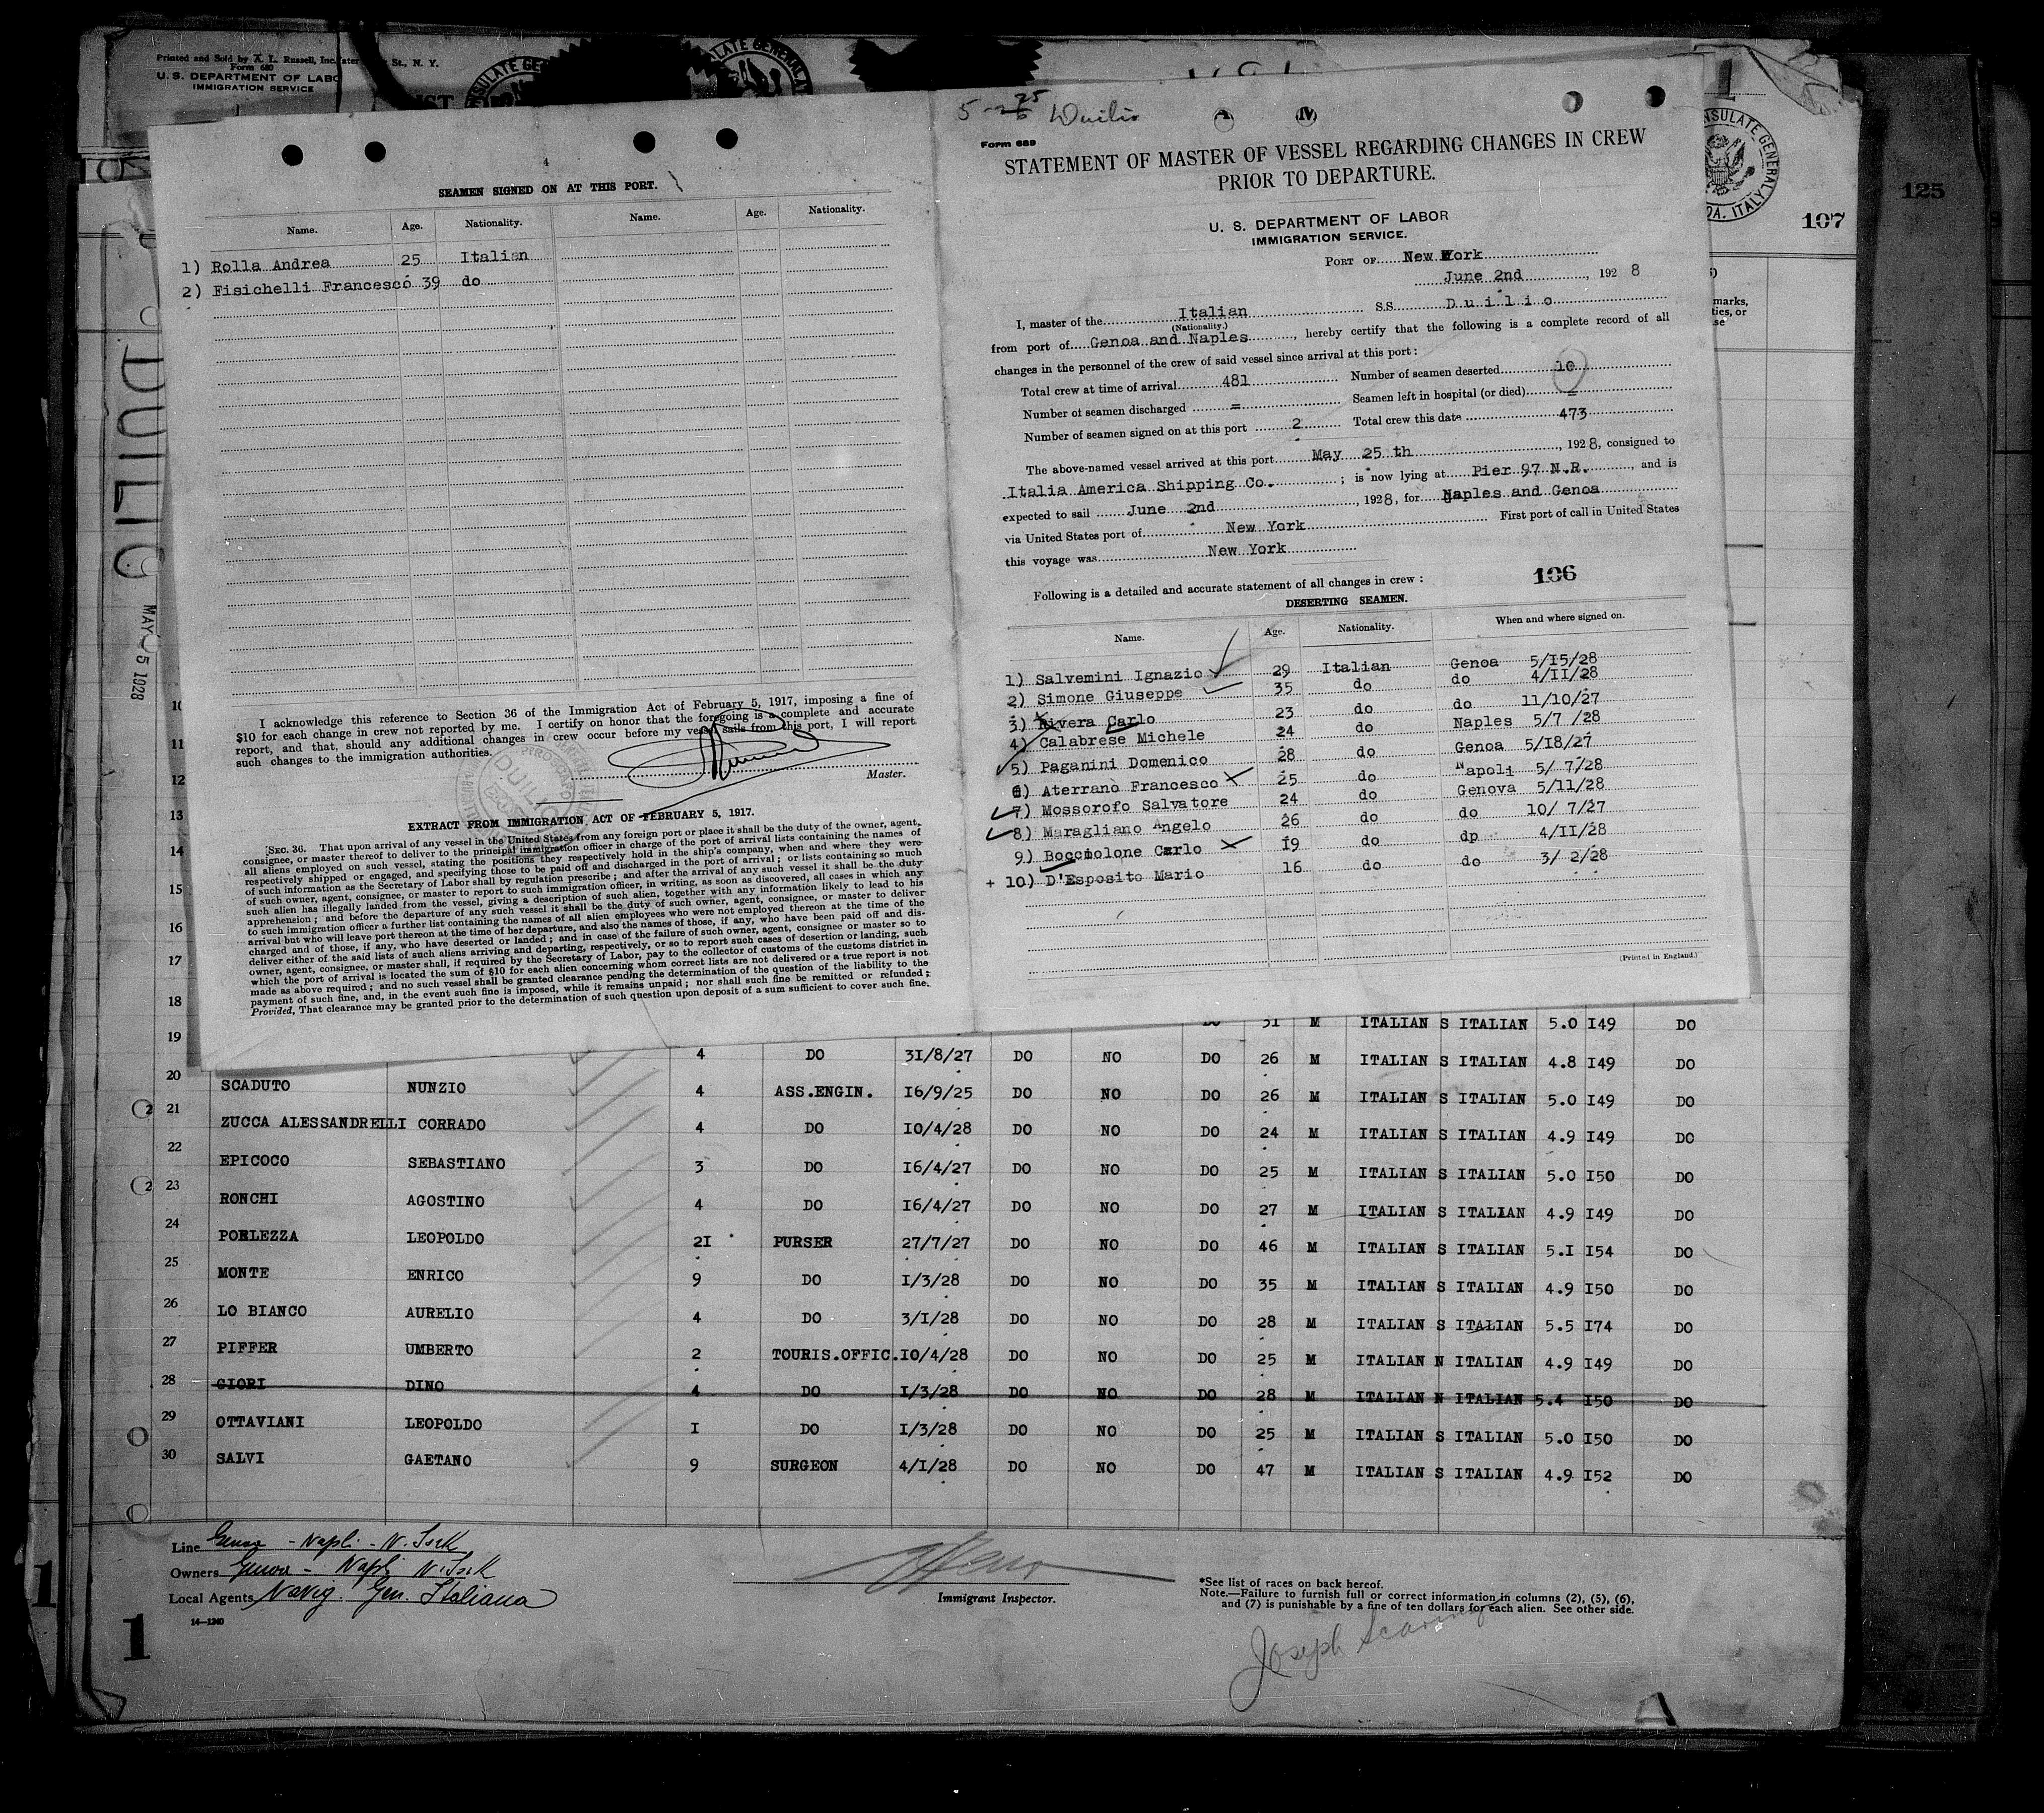 Printed and Sold by A. L. Russell, Inc. St., N. Y.
Form 680
U. S. DEPARTMENT OF LABO
IMMIGRATION SERVICE
125
107
DUILIO
4
SEAMEN SIGNED ON AT THIS PORT.
Name. Age. Nationality. Name. Age. Nationality.
1) Rolla Andrea 25 Italian
2) Fisichelli Francesco 39 do
I acknowledge this reference to Section 36 of the Immigration Act of February 5, 1917, imposing a fine of
$10 for each change in crew not reported by me. I certify on honor that the foregoing is a complete and accurate
report, and that, should any additional changes in crew occur before my vessel sails from this port, I will report
such changes to the immigration authorities.
Master.
EXTRACT FROM IMMIGRATION ACT OF FEBRUARY 5, 1917.
SEC. 36. That upon arrival of any vessel in the United States from any foreign port or place it shall be the duty of the owner, agent,
consignee, or master thereof to deliver to the principal immigration officer in charge of the port of arrival lists containing the names of
all aliens employed on such vessel, stating the positions they respectively hold in the ship's company, when and where they were
respectively shipped or engaged, and specifying those to be paid off and discharged in the port of arrival; or lists containing so much
of such information as the Secretary of Labor shall by regulation prescribe; and after the arrival of any such vessel it shall be the duty
of such owner, agent, consignee, or master to report to such immigration officer, in writing, as soon as discovered, all cases in which any
such alien has illegally landed from the vessel, giving a description of such alien, together with any information likely to lead to his
apprehension; and before the departure of any such vessel it shall be the duty of such owner, agent, consignee, or master to deliver
to such immigration officer a further list containing the names of all alien employees who were not employed thereon at the time of the
arrival but who will leave port thereon at the time of her departure, and also the names of those, if any, who have been paid off and dis-
charged and of those, if any, who have deserted or landed; and in case of the failure of such owner, agent, consignee or master so to
deliver either of the said lists of such aliens arriving and departing, respectively, or so to report such cases of desertion or landing, such
owner, agent, consignee, or master shall, if required by the Secretary of Labor, pay to the collector of customs of the customs district in
which the port of arrival is located the sum of $10 for each alien concerning whom correct lists are not delivered or a true report is not
made as above required; and no such vessel shall be granted clearance pending the determination of the question of the liability to the
payment of such fine, and, in the event such fine is imposed, while it remains unpaid; nor shall such fine be remitted or refunded:
Provided, That clearance may be granted prior to the determination of such question upon deposit of a sum sufficient to cover such fine.
Duilio
Form 689
STATEMENT OF MASTER OF VESSEL REGARDING CHANGES IN CREW
PRIOR TO DEPARTURE.
U. S. DEPARTMENT OF LABOR
IMMIGRATION SERVICE.
PORT OF New York
June 2nd, 1928
I, master of the Italian SS. Duilio
(Nationality.)
from port of Genoa and Naples, hereby certify that the following is a complete record of all
changes in the personnel of the crew of said vessel since arrival at this port:
Total crew at time of arrival 481 Number of seamen deserted 10
Number of seamen discharged = Seamen left in hospital (or died) =
Number of seamen signed on at this port 2 Total crew this date 473
The above-named vessel arrived at this port May 25 th, 1928, consigned to
Italia America Shipping Co. ; is now lying at Pier 97 N.R., and is
expected to sail June 2nd, 1928, for Naples and Genoa
via United States port of New York First port of call in United States
this voyage was New York
Following is a detailed and accurate statement of all changes in crew: 106
DESERTING SEAMEN.
Name. Age. Nationality. When and where signed on.
1) Salvemini Ignazio 29 Italian Genoa 5/15/28
2) Simone Giuseppe 35 do do 4/11/28
3) Rivera Carlo 23 do do 11/10/27
4) Calabrese Michele 24 do Naples 5/7 /28
5) Paganini Domenico 28 do Genoa 5/18/27
6) Aterrano Francesco 25 do Napoli 5/ 7/28
7) Mossorofo Salvatore 24 do Genova 5/11/28
8) Maragliano Angelo 26 do do 10/ 7/27
9) Bocciolone Carlo 19 do dp 4/11/28
+ 10) D'Esposito Mario 16 do do 3/ 2/28
(Printed in England.)
10
11
12
13
14
15
16
17
18
DO 31 M ITALIAN S ITALIAN 5.0 I49 DO
19 4 DO 31/8/27 DO NO DO 26 M ITALIAN S ITALIAN 4.8 I49 DO
20 SCADUTO NUNZIO 4 ASS.ENGIN. I6/9/25 DO NO DO 26 M ITALIAN S ITALIAN 5.0 I49 DO
21 ZUCCA ALESSANDRELLI CORRADO 4 DO I0/4/28 DO NO DO 24 M ITALIAN S ITALIAN 4.9 I49 DO
22 EPICOCO SEBASTIANO 3 DO I6/4/27 DO NO DO 25 M ITALIAN S ITALIAN 5.0 I50 DO
23 RONCHI AGOSTINO 4 DO I6/4/27 DO NO DO 27 M ITALIAN S ITALIAN 4.9 I49 DO
24 PORLEZZA LEOPOLDO 2I PURSER 27/7/27 DO NO DO 46 M ITALIAN S ITALIAN 5.I I54 DO
25 MONTE ENRICO 9 DO I/3/28 DO NO DO 35 M ITALIAN S ITALIAN 4.9 I50 DO
26 LO BIANCO AURELIO 4 DO 3/I/28 DO NO DO 28 M ITALIAN S ITALIAN 5.5 I74 DO
27 PIFFER UMBERTO 2 TOURIS.OFFIC.I0/4/28 DO NO DO 25 M ITALIAN N ITALIAN 4.9 I49 DO
28 GIORI DINO 4 DO I/3/28 DO NO DO 28 M ITALIAN N ITALIAN 5.4 I50 DO
29 OTTAVIANI LEOPOLDO I DO I/3/28 DO NO DO 25 M ITALIAN S ITALIAN 5.0 I50 DO
30 SALVI GAETANO 9 SURGEON 4/I/28 DO NO DO 47 M ITALIAN S ITALIAN 4.9 I52 DO
Line Genoa - Napoli -
Owners Genova - Napoli
Local Agents Navig. Gen. Italiana
14—1240
Immigrant Inspector.
*See list of races on back hereof.
Note.—Failure to furnish full or correct information in columns (2), (5), (6),
and (7) is punishable by a fine of ten dollars for each alien. See other side.
Joseph
1
A